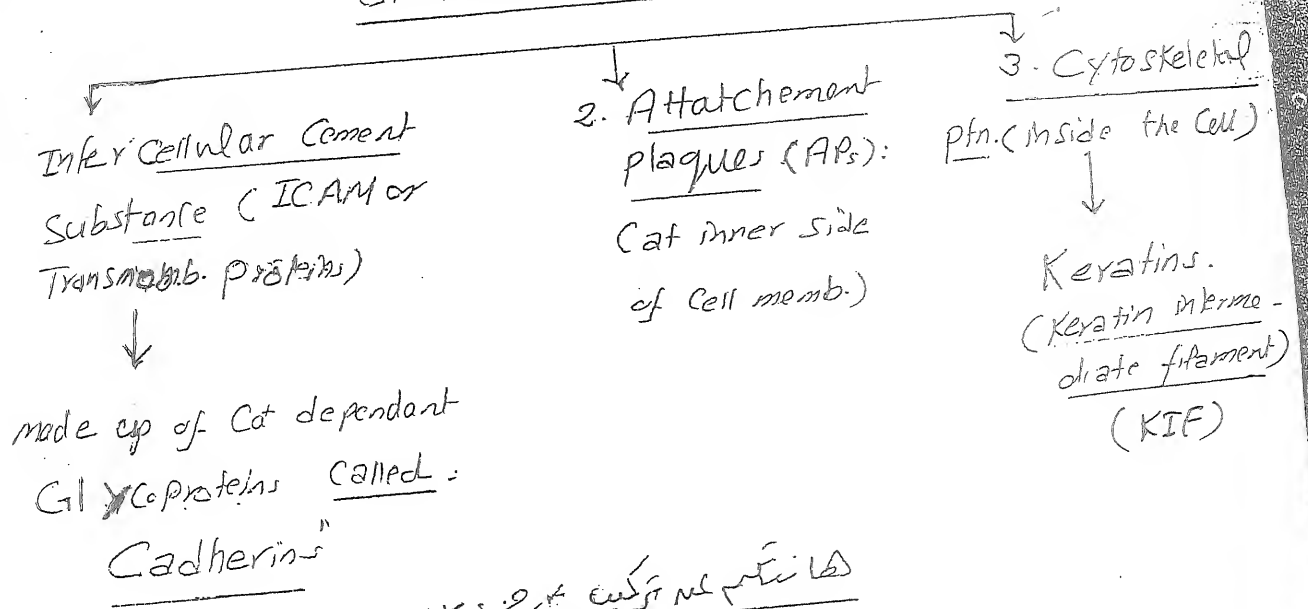 Inter Cellular Cement
Substance ( ICAM or
Transmemb. proteins)
made up of Ca+ dependant
Glycoproteins called :
Cadherins"
2. Attatchement
plaques (APs):
(at inner side
of Cell memb.)
3. Cytoskeletal
ptn. (inside the Cell)
Keratins.
(Keratin interme-
diate filament)
(KIF)
هنتكلم عن تركيب